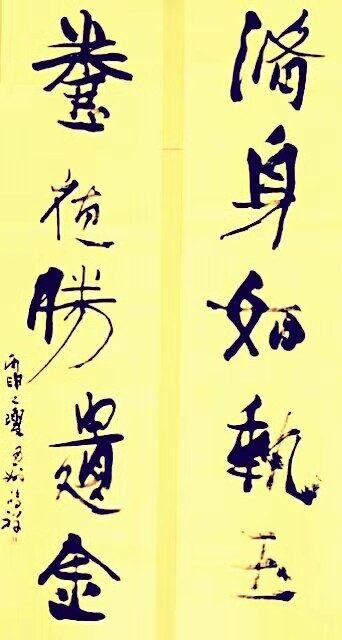 脩身如執玉
養德勝遺金
丙申之